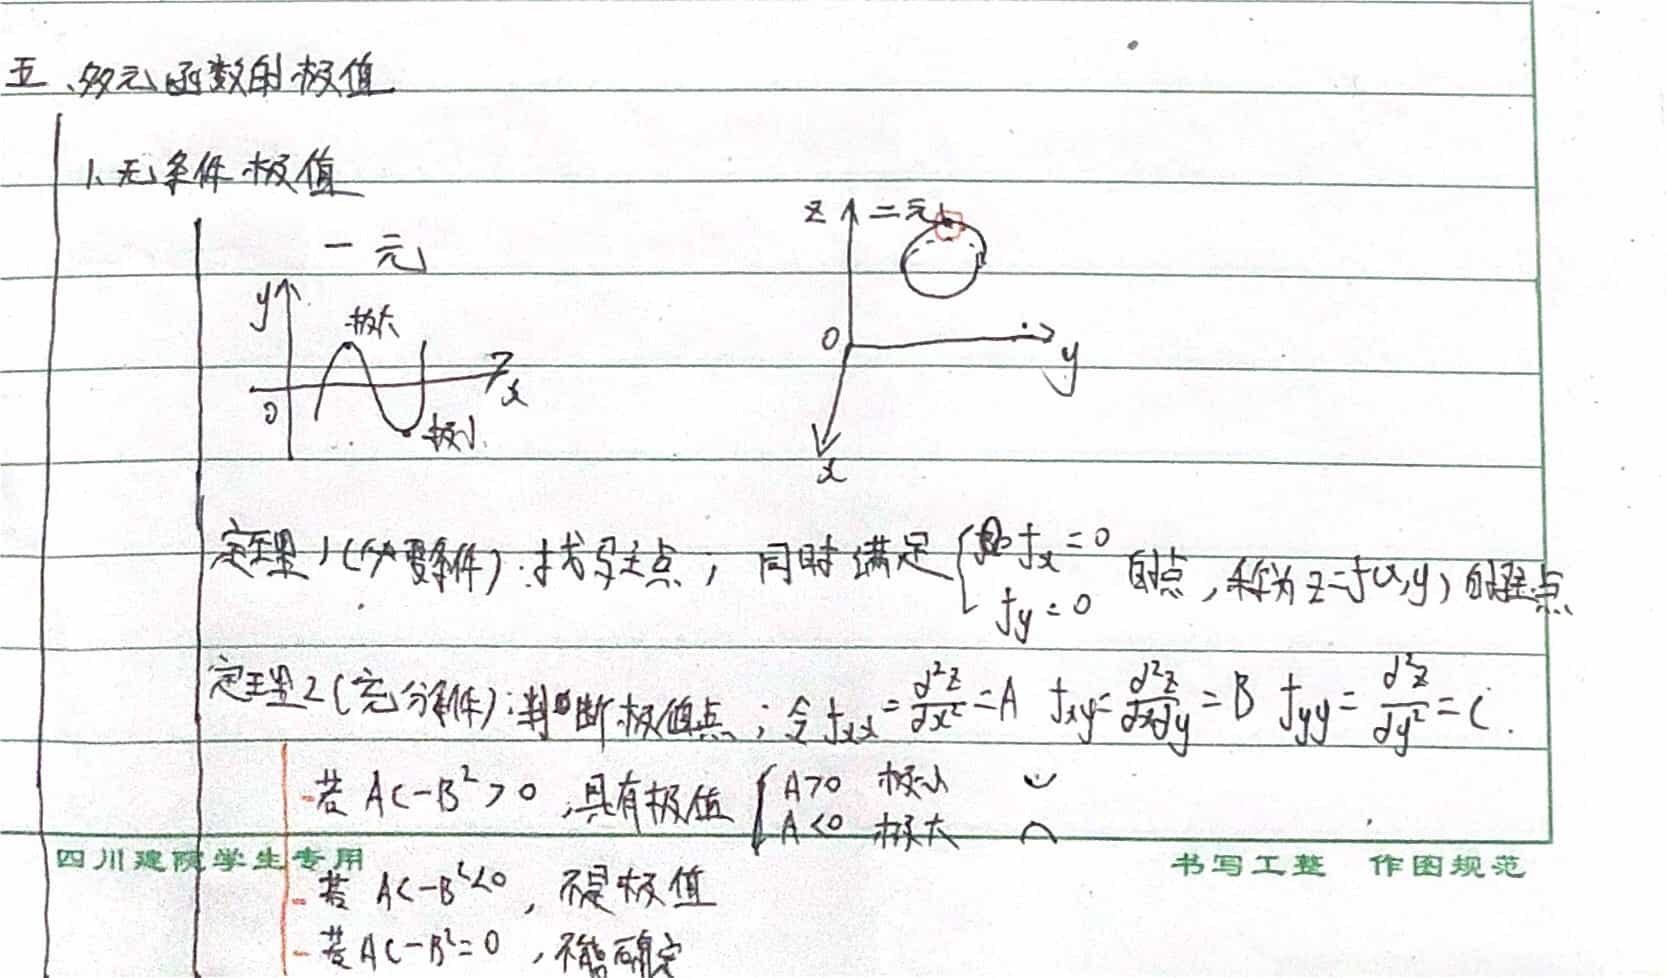 五、多元函数的极值
1、无条件极值
一元
二元
z
y
极大
0
x
极小
0
y
x
定理1(必要条件):找驻点; 同时满足 { fx=0 fy=0 的点,称为z=f(x,y)的驻点
定理2(充分条件):判断极值点;令fxx=d²z/dx²=A fxy=d²z/dxdy=B fyy=d²z/dy²=C.
-若 AC-B²>0,具有极值 { A>0 极小
A<0 极大
四川建院学生专用 书写工整 作图规范
-若 AC-B²<0,不是极值
-若AC-B²=0,不能确定